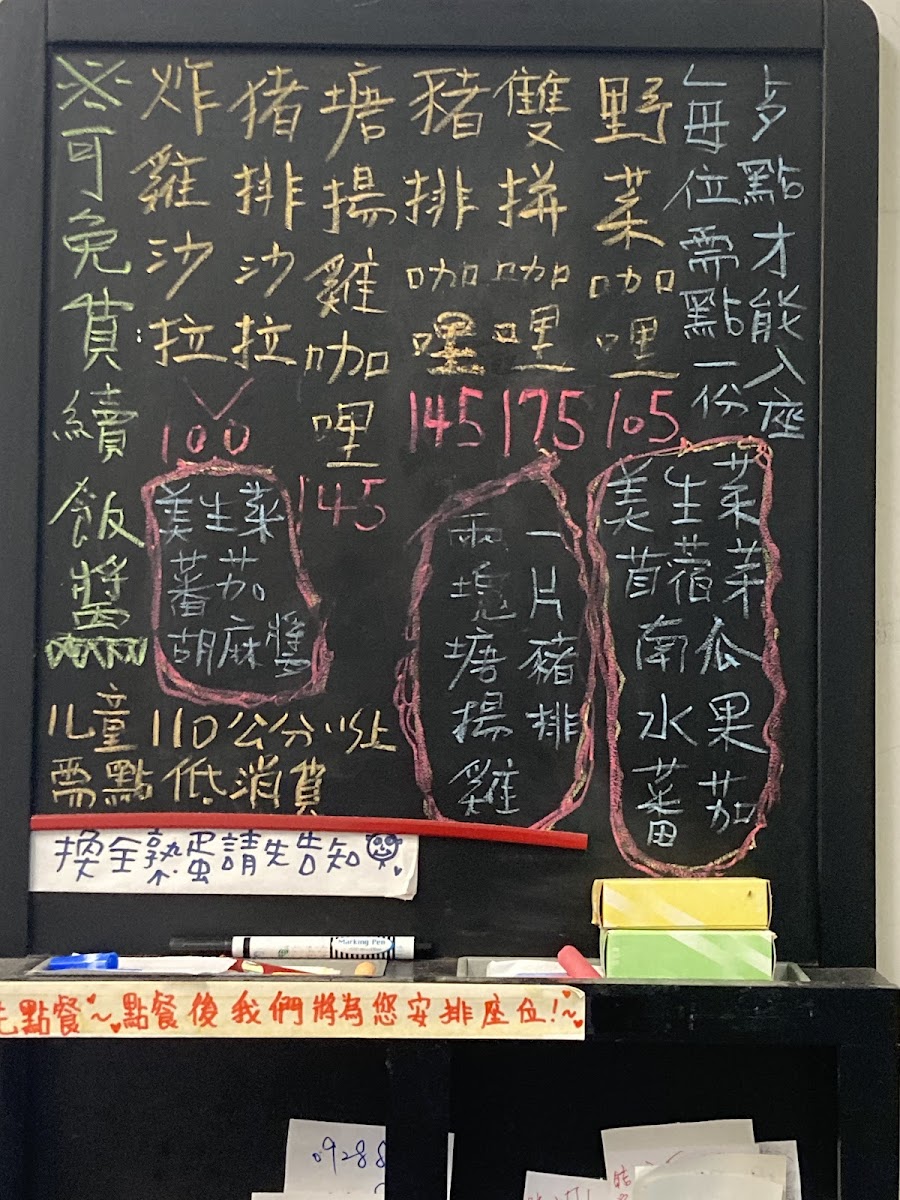 每位需點一份
點才能入座
野菜咖哩
105
雙拼咖哩
175
豬排咖哩
145
塘揚雞咖哩
145
猪排沙拉
炸雞沙拉
100
※可免費續飯醬
美生菜
苜蓿芽
南瓜
水果
蕃茄
一片豬排
兩塊塘揚雞
美生菜
蕃茄
胡麻醬
儿童110公分以上
需點低消費
換全熟蛋請先告知
Marking Pen
先點餐~點餐後我們將為您安排座位!~
0928